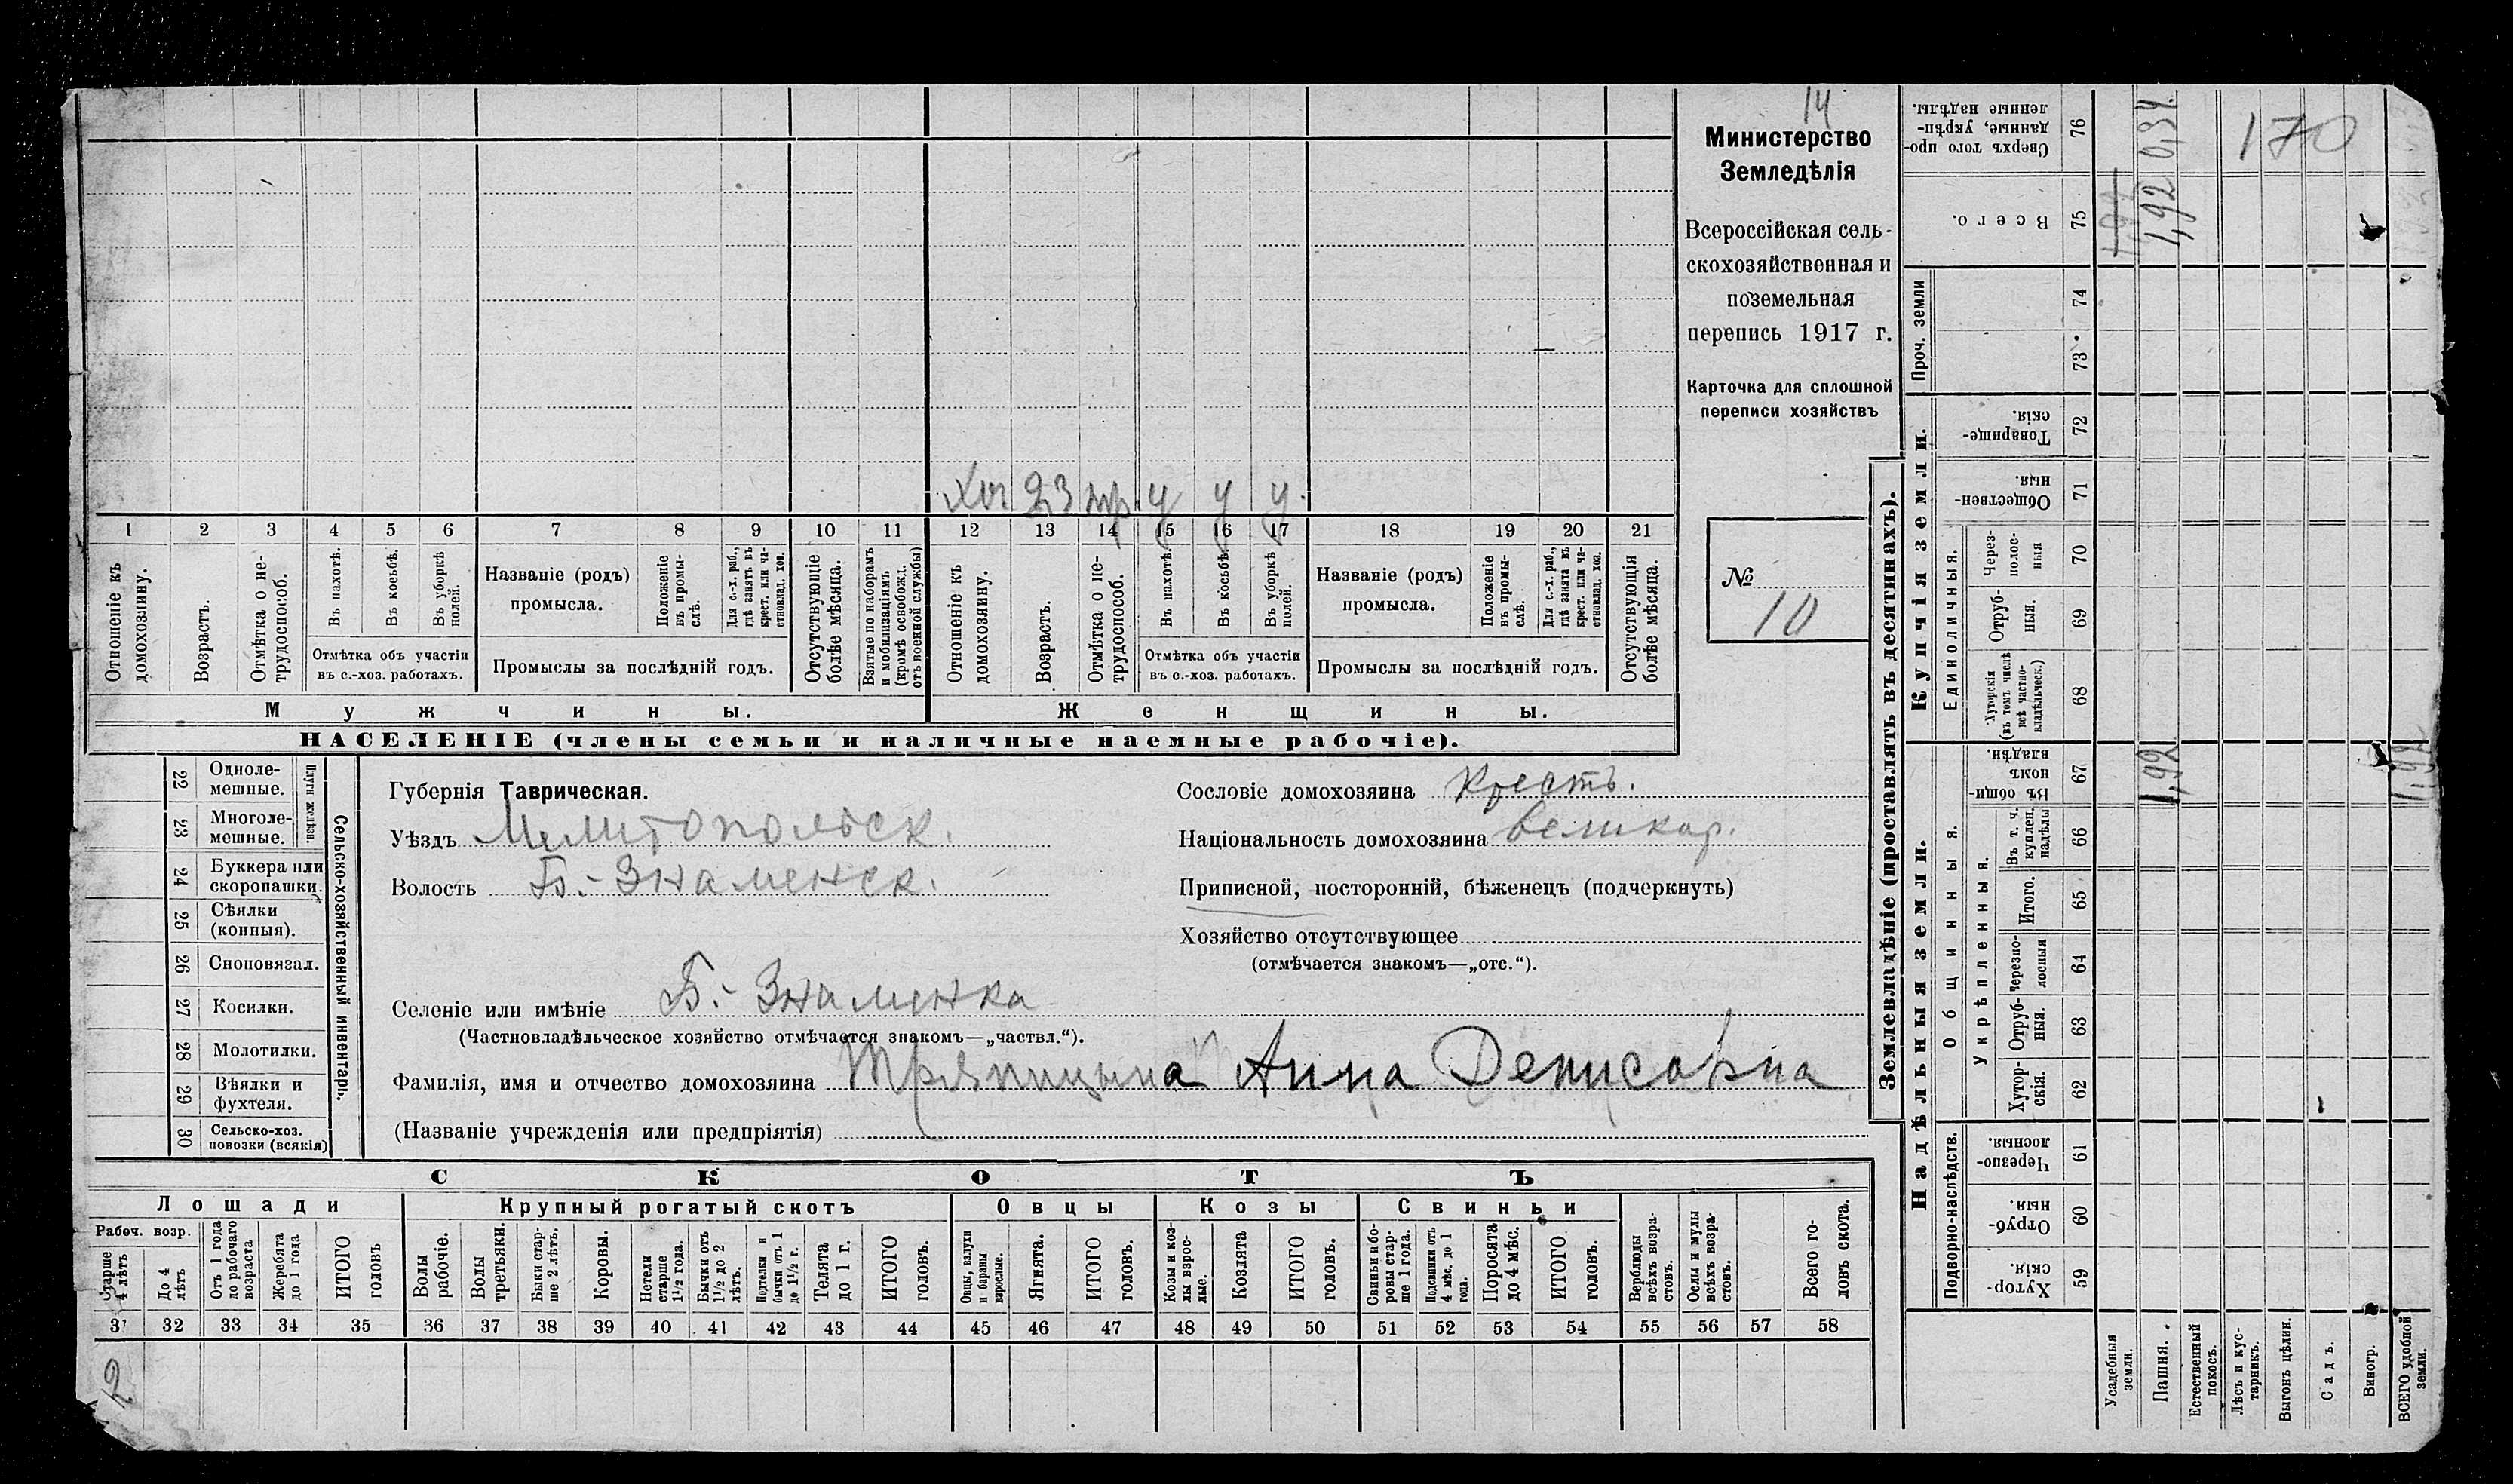 14
Министерство
Земледѣлія
Всероссійская сель-
скохозяйственная и
поземельная
перепись 1917 г.
Карточка для сплошной
переписи хозяйствъ
№
10
Хоз 23 тр. у у у.
1 2 3 4 5 6 7 8 9 10 11 12 13 14 15 16 17 18 19 20 21
Отношеніе къ домохозяину.
Возрастъ.
Отмѣтка о не-трудоспособ.
Въ пахотѣ.
Въ косьбѣ.
Въ уборкѣ полей.
Отмѣтка объ участіи
въ с.-хоз. работахъ.
Названіе (родъ)
промысла.
Положеніе въ промы-слѣ.
Для с.-х. раб., гдѣ занятъ въ крест. или ча-стновлад. хоз.
Промыслы за послѣдній годъ.
Отсутствующіе болѣе мѣсяца.
Взятые по наборамъ и мобилизаціямъ (кромѣ освобожд. отъ военной службы)
Отношеніе къ домохозяину.
Возрастъ.
Отмѣтка о не-трудоспособ.
Въ пахотѣ.
Въ косьбѣ.
Въ уборкѣ полей.
Отмѣтка объ участіи
въ с.-хоз. работахъ.
Названіе (родъ)
промысла.
Положеніе въ промы-слѣ.
Для с.-х. раб., гдѣ занята въ крест. или ча-стновлад. хоз.
Промыслы за послѣдній годъ.
Отсутствующія болѣе мѣсяца.
Мужчины.
Женщины.
НАСЕЛЕНІЕ (члены семьи и наличные наемные рабочіе).
Сельско-хозяйственный инвентарь.
Плуги желѣзн.
22 Одноле-мешные.
23 Многоле-мешные.
24 Буккера или скоропашки.
25 Сѣялки (конныя).
26 Сноповязал.
27 Косилки.
28 Молотилки.
29 Вѣялки и фухтеля.
30 Сельско-хоз. повозки (всякія)
Губернія Таврическая.
Уѣздъ Мелитопольск.
Волость Б.-Знаменск.
Селеніе или имѣніе Б.-Знаменка
(Частновладѣльческое хозяйство отмѣчается знакомъ—„частвл.“).
Фамилія, имя и отчество домохозяина Тряпицына Анна Денисовна
(Названіе учрежденія или предпріятія)
Сословіе домохозяина Крестъ.
Національность домохозяина великор.
Приписной, посторонній, бѣженецъ (подчеркнуть)
Хозяйство отсутствующее
(отмѣчается знакомъ—„отс.“).
СКОТЪ
Лошади
Крупный рогатый скотъ
Овцы
Козы
Свиньи
Рабоч. возр.
Старше 4 лѣтъ
До 4 лѣтъ
Отъ 1 года до рабочаго возраста
Жеребята до 1 года
ИТОГО головъ
Волы рабочіе.
Волы третьяки.
Быки стар-ше 2 лѣтъ.
Коровы.
Нетели старше 1½ года.
Бычки отъ 1½ до 2 лѣтъ.
Подтелки и бычки отъ 1 до 1½ г.
Телята до 1 г.
ИТОГО головъ.
Овцы, валухи и бараны взрослые.
Ягнята.
ИТОГО головъ.
Козы и коз-лы взрос-лые.
Козлята
ИТОГО головъ.
Свиньи и бо-ровы стар-ше 1 года.
Подсвинки отъ 4 мѣс. до 1 года.
Поросята до 4 мѣс.
ИТОГО головъ.
Верблюды всѣхъ возра-стовъ.
Ослы и мулы всѣхъ возра-стовъ.
Всего го-ловъ скота.
31 32 33 34 35 36 37 38 39 40 41 42 43 44 45 46 47 48 49 50 51 52 53 54 55 56 57 58
2
Землевладѣніе (проставлять въ десятинахъ).
Купчія земли.
Надѣльныя земли.
Сверхъ того про-данные, укрѣп-ленные надѣлы. 76
Всего. 75
Проч. земли
74
73
Товарище-скія. 72
Обществен-ныя. 71
Единоличныя.
Через-полос-ныя 70
Отруб-ныя. 69
Хуторскія (въ томъ числѣ всѣ частно-владѣльческ.) 68
Общинныя.
Въ общи-номъ владѣн. 67
Укрѣпленныя.
Въ т. ч. куплен. надѣлы 66
Итого. 65
Черезпо-лосныя 64
Отруб-ныя. 63
Хутор-скія. 62
Подворно-наслѣдств.
Черезпо-лосныя. 61
Отруб-ныя. 60
Хутор-скія. 59
Усадебныя земли.
Пашня.
Естественный покосъ.
Лѣсъ и кус-тарникъ.
Выгонъ цѣлин.
Садъ.
Виногр.
ВСЕГО удобной земли.
1,92
1,92
1,92
170